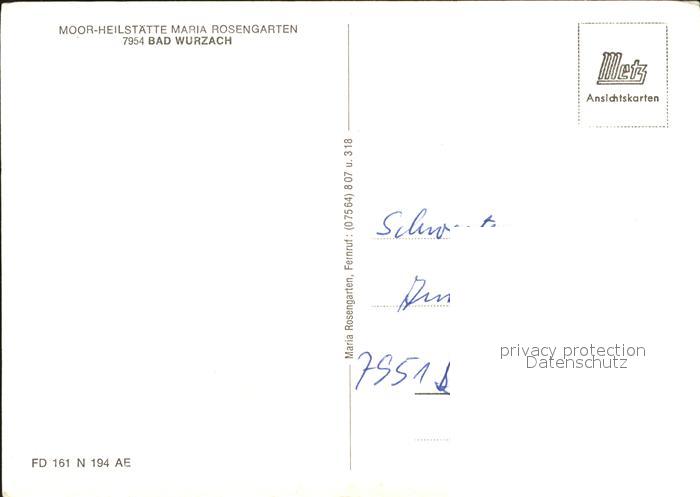 MOOR-HEILSTÄTTE MARIA ROSENGARTEN
7954 BAD WURZACH
Metz
Ansichtskarten
Maria Rosengarten, Fernruf: (07564) 807 u. 318
7951
privacy protection
Datenschutz
FD 161 N 194 AE